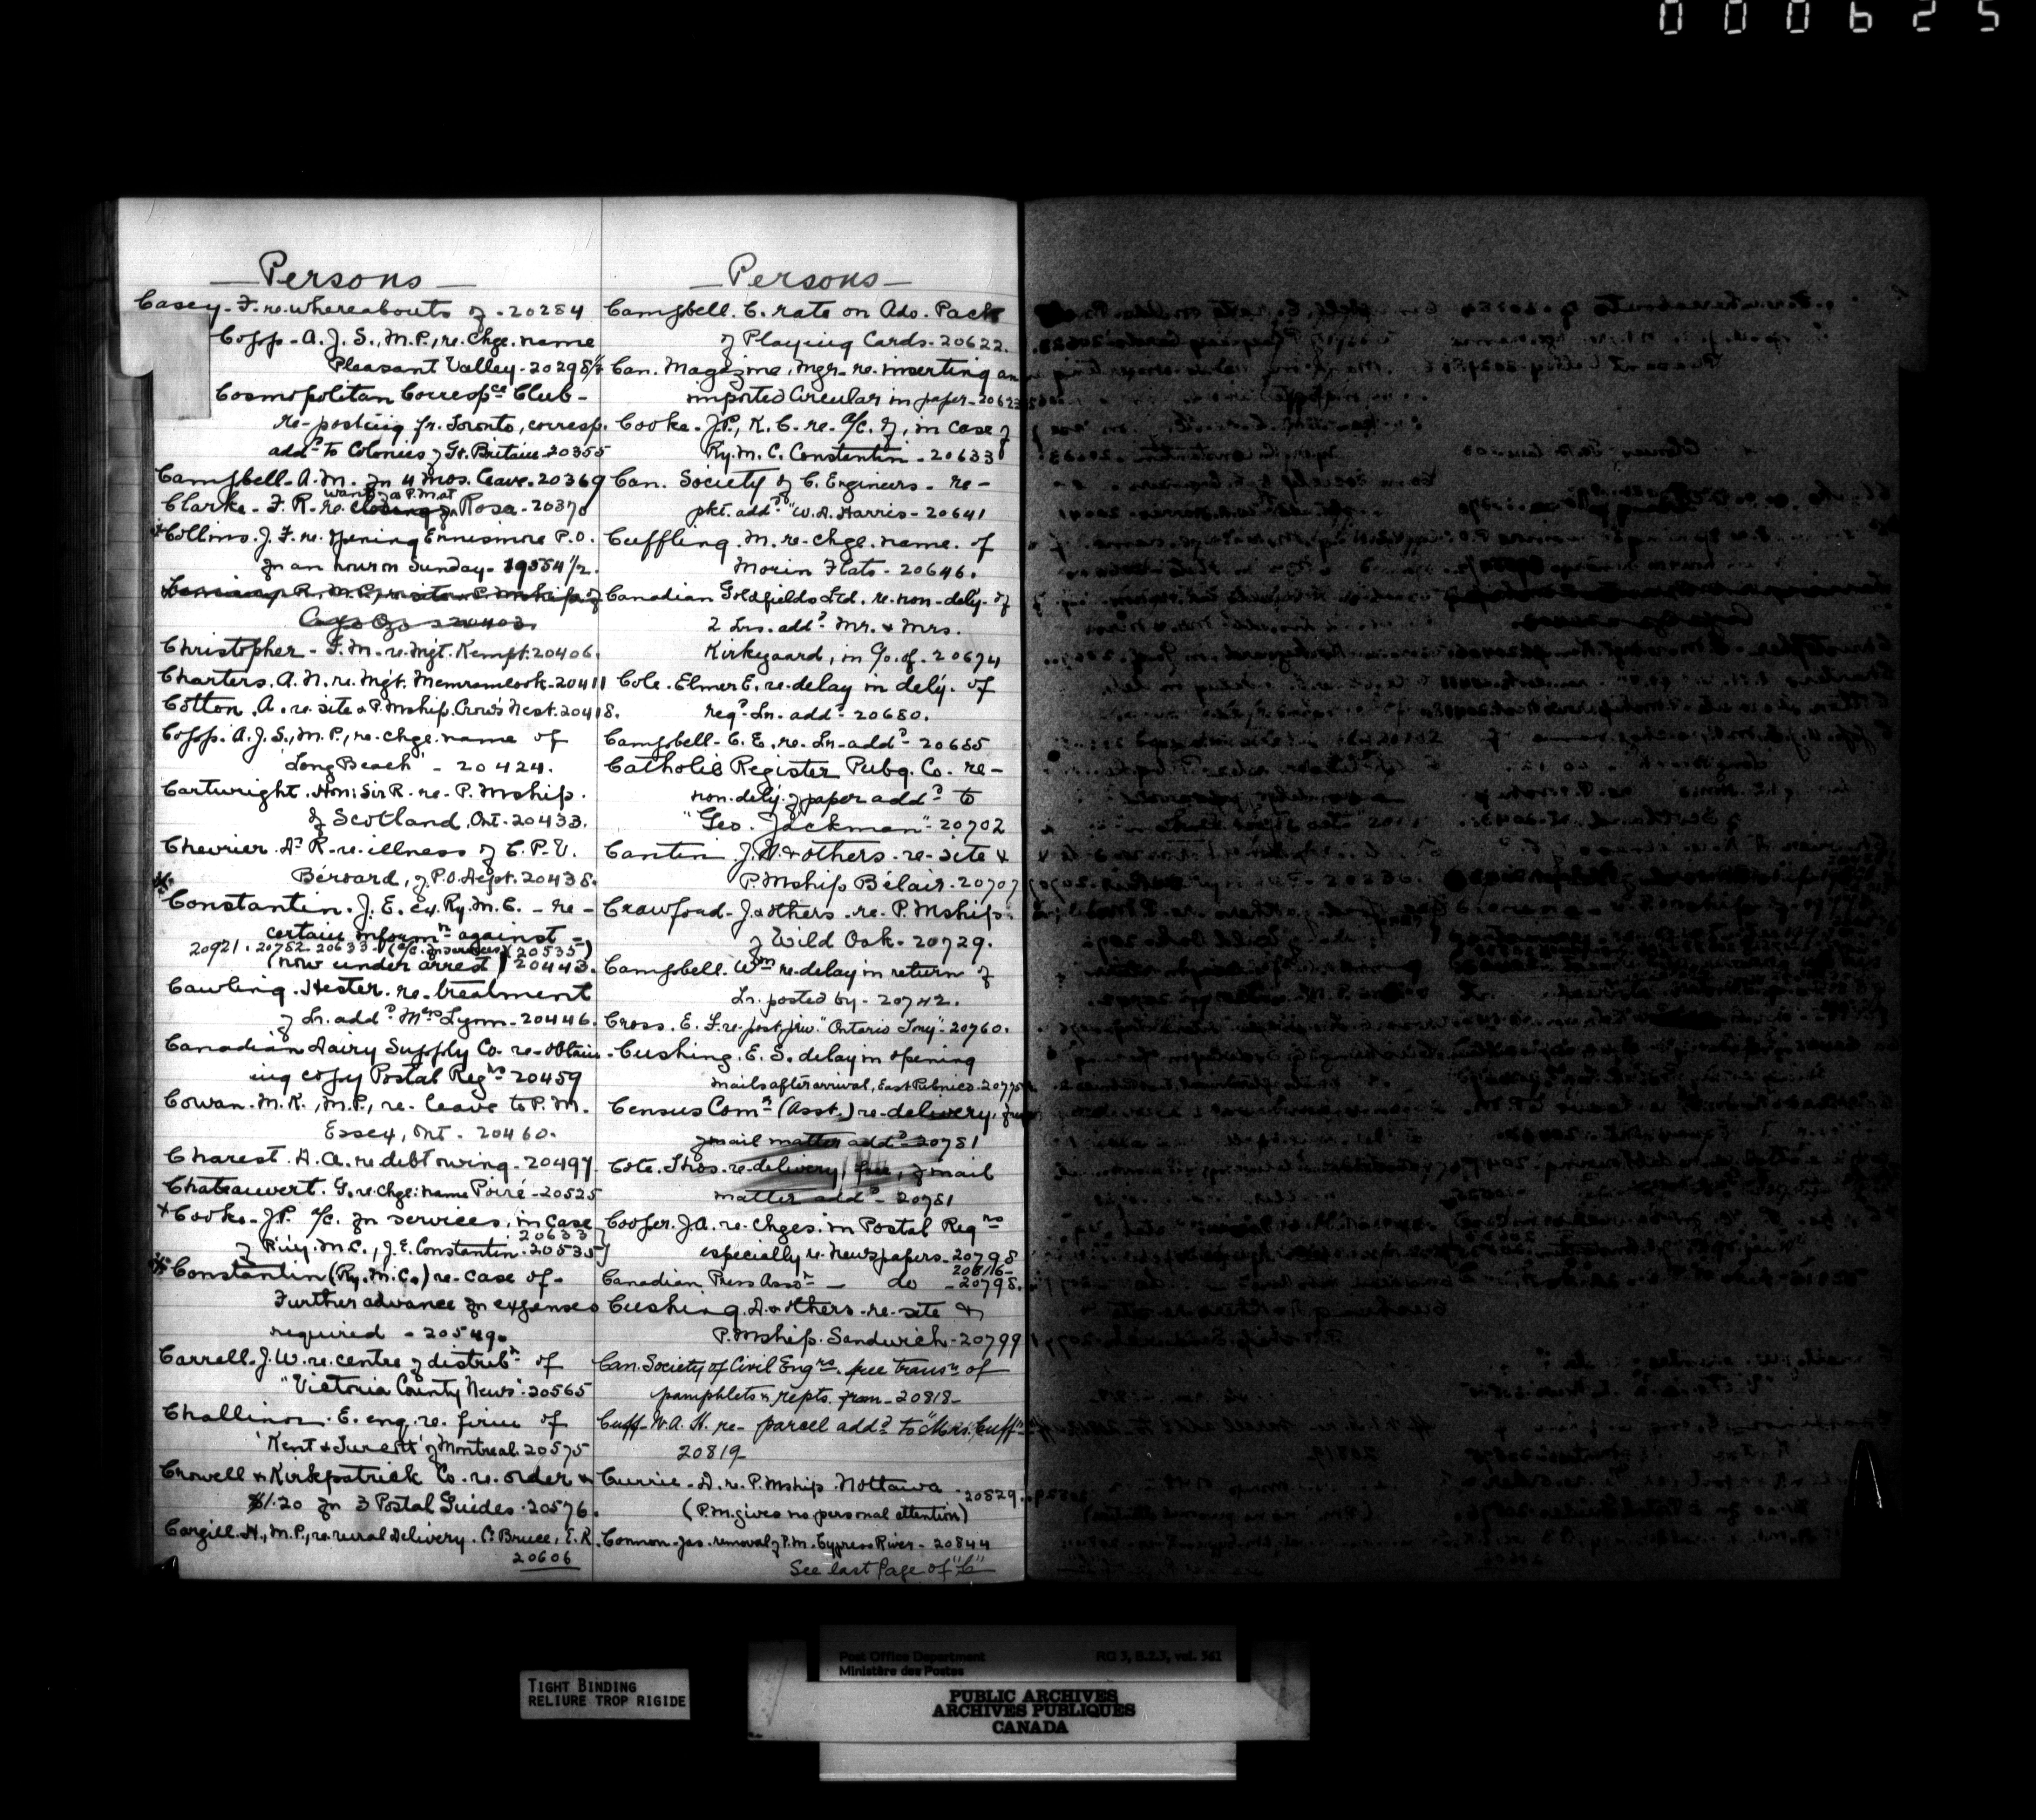 000625
Persons
Casey. F. re. whereabouts of - 20284
Copp - A. J. S., M.P., re. Chge. name
Pleasant Valley - 20298½
Cosmopolitan Correspce Club -
re-posting fr. Toronto, corresp.
addd to Colonies & Gt. Britain 20355
Campbell - A. M. fr 4 Mos. leave. 20369
wants a P.M. at
Clarke - F. R. re. closing Rosa - 20370
Collins. J. F. re. opening Ennismore P.O.
for an hour on Sunday - 19554½.
20403.
Christopher - F. M. re. Mgt. Kempt. 20406.
Charters. A. N. re. Mgt. Memramcook - 20411
Cotton. A. re. site & P. Mship. Crow's Nest. 20418.
Copp. A. J. S., M. P., re. chge. name of
'Long Beach' - 20424.
Cartwright. Hon: Sir R. re. P. Mship.
of Scotland, Ont - 20433.
Chevrier. Dr R. re. illness of C. P. V.
Bérard, of P.O. Dept. 20438.
Constantin. J. E. ex. Ry. M. C. - re -
certain informn against -
20921. 20752 - 20633 - (a/c. for services) (20535)
(now under arrest) 20443.
Cawling. Hester. re. treatment
of Lr. addd Mrs Lynn - 20446.
Canadian Dairy Supply Co. re. obtain-
ing copy Postal Regns 20459
Cowan. M. K., M.P., re. leave to P. M.
Essex, Ont - 20460.
Charest. A. re debt owing - 20497
Chateauvert. G. re. chge: name Poiré - 20525
Cooke - J. P. a/c. for services, in case
20633
of Ry. M. C., J. E. Constantin. 20535
Constantin (Ry. M. C.) re. case of -
Further advance for expenses
required - 20549.
Carrell. J. W. re. centre of distribn of
"Victoria County News". 20565
Challinor. E. enq. re. firm of
'Kent & Turcott' of Montreal. 20575
Crowell & Kirkpatrick Co. re. order &
$1.20 for 3 Postal Guides. 20576.
Cargill. H., M.P., re. rural delivery. Co Bruce, E. R.
20606
Persons
Campbell. C. rate on Ads. Pack
of Playing Cards - 20622.
Can. Magazine, Mgr - re. inserting an
imported Circular in paper - 20623
Cooke. J. P., K. C. re. a/c. of, in case of
Ry. M. C. Constantin. 20633
Can. Society of C. Engineers - re -
pkt. addd "W. A. Harris - 20641
Cuffling. M. re. chge. name. of
Morin Flats - 20646.
Canadian Goldfields Ltd. re. non-dely. of
2 Lrs. addd Mr. & Mrs.
Kirkegaard, in c/o. of. 20674
Cole. Elmer E. re. delay in dely. of
regd Lr. addd 20680.
Campbell - C. E. re. Lr. addd 20685
Catholic Register Pubg. Co. re -
non-dely. of paper addd to
"Geo. Jackman" - 20702
Cantin J. A. & others. re. site &
P. Mship Bélair. 20707
Crawford - J. & others. re. P. Mship.
of Wild Oak - 20729.
Campbell. Wm re. delay in return of
Lr. posted by - 20742.
Cross. E. F. re. post. priv. "Ontario Tory" - 20760.
Cushing. E. S. delay in opening
mails after arrival, East Pubnico - 20775
Census Comr (Asst.) re. delivery, free
of mail matter addd 20781
Cote. Thos. re. delivery, free, of mail
matter addd - 20781
Cooper. J. A. re. Chges. in Postal Regns
especially re. Newspapers - 20798
20816 -
Canadian Press Assn - do - 20798.
Cushing. A. & others. re. site &
P. Mship. Sandwich - 20799
Can. Society of Civil Engrs. free transn of
pamphlets & repts. from - 20818 -
Cuff - W. A. H. re - parcel addd to "Mrs. Cuff"
20819 -
Currie - D. re. P. Mship Nottawa
20829.
(P.M. gives no personal attention)
Connon - Jas. removal of P. M. Cypress River - 20844
See last Page of "C"
TIGHT BINDING
RELIURE TROP RIGIDE
Post Office Department RG 3, B.2.3, vol. 561
Ministère des Postes
PUBLIC ARCHIVES
ARCHIVES PUBLIQUES
CANADA